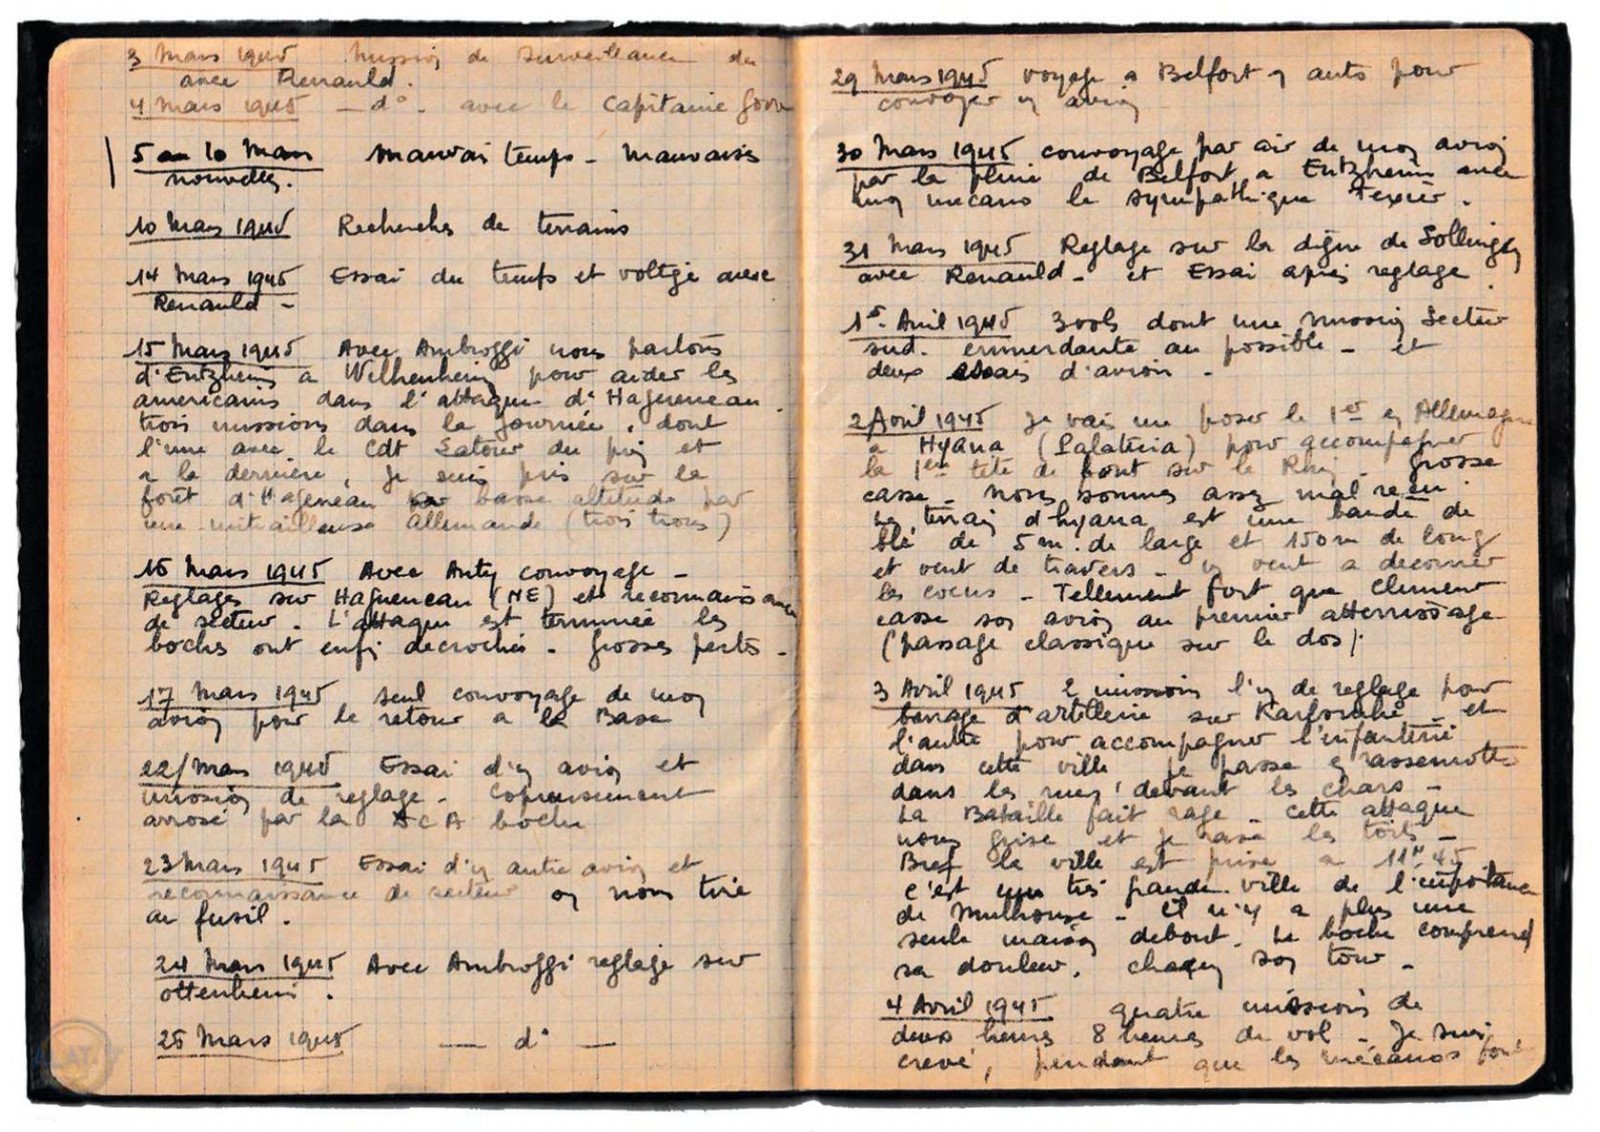 3 Mars 1945 Mission de surveillance du
avec Renauld.
4 Mars 1945 — d° - avec le Capitaine
5 au 10 Mars Mauvais temps - Mauvaises
nouvelles.
10 Mars 1945 Recherches de terrains
14 Mars 1945 Essai du temps et voltige avec
Renauld -
15 Mars 1945 Avec Ambroggi nous partons
d'Entzheim a Wilhenheim pour aider les
americains dans l'attaque d'Hagueneau.
trois missions dans la journée, dont
l'une avec le Cdt Latour du pin et
a la derniere, je suis pris sur la
foret d'Hageneau basse altitude par
une mitrailleuse Allemande (trois trous)
16 Mars 1945 Avec Anty convoyage -
Reglages sur Hagueneau (NE) et reconnaissance
de secteur. L'attaque est terminée les
boches ont enfin decroché - grosses pertes -
17 Mars 1945 seul convoyage de mon
avion pour le retour a la Base
22/Mars 1945 Essai d'un avion et
mission de reglage - copieusement
arrosé par la DCA boche
23 Mars 1945 Essai d'un autre avion et
reconnaissance de secteur on nous tire
au fusil.
24 Mars 1945 Avec Ambroggi reglage sur
ottenheim.
25 Mars 1945 — d° —
29 Mars 1945 voyage a Belfort en auto pour
convoyer un avion
30 Mars 1945 convoyage par air de mon avion
par la pluie de Belfort a Entzheim avec
mon mecano le sympathique Texier.
31 Mars 1945 Reglage sur la digue de Sollingen
avec Renauld - et Essai après reglage.
1er Avril 1945 3 vols dont une mission Secteur
sud. emmerdante au possible - et
deux essais d'avion -
2 Avril 1945 Je vais me poser le 1er en Allemagne
a Hyana (Palatina) pour accompagner
la 1ere tete de pont sur le Rhin - Grosse
casse - Nous sommes assez mal reçu.
Le terrain d'hyana est une bande de
blé de 5m. de large et 150m de long
et vent de travers - un vent a decorner
les cocus - Tellement fort que Clement
casse son avion au premier atterrissage
(passage classique sur le dos).
3 Avril 1945 2 missions l'une de reglage pour
barrage d'artillerie sur Karlsruhe - et
l'autre pour accompagner l'infanterie
dans cette ville je passe en rasemotte
dans les rues, devant les chars -
La Bataille fait rage - cette attaque
nous grise et je rase les toits -
Bref la ville est prise a 11H45
c'est une très grande ville de l'importance
de Mulhouse - Il n'y a plus une
seule maison debout. Le boche comprend
sa douleur. chacun son tour -
4 Avril 1945 quatre missions de
deux heures 8 heures de vol - Je suis
crevé, pendant que les mécanos font